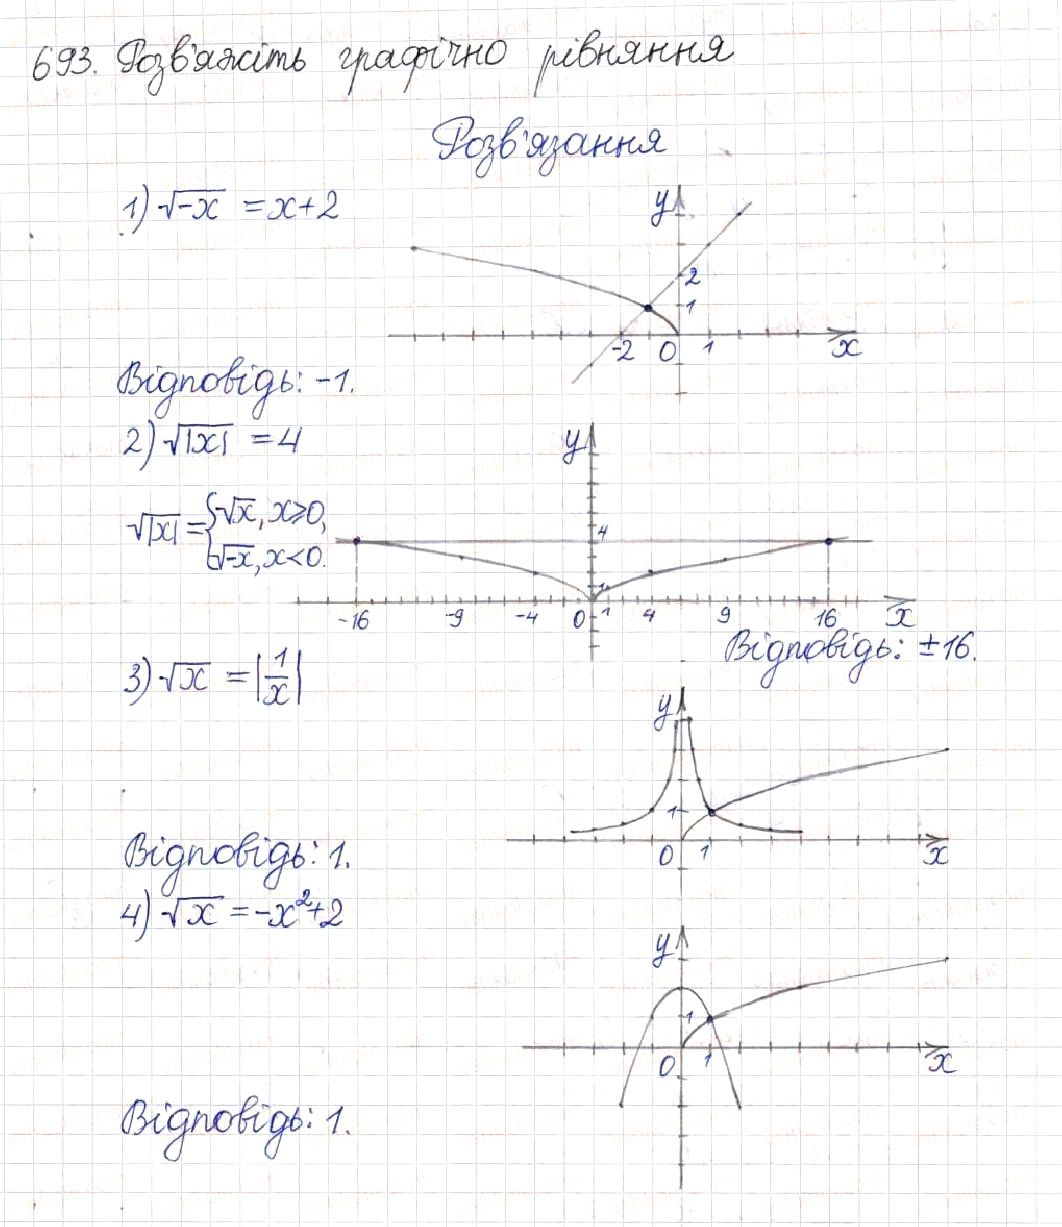 693. Розв'яжіть графічно рівняння
Розв'язання
1) √-x = x+2
y
2
1
-2 0 1 x
Відповідь: -1.
2) √|x| = 4
√|x| = {√x, x≥0,
√-x, x<0.
y
4
1
-16 -9 -4 0 1 4 9 16 x
Відповідь: ±16.
3) √x = |1/x|
y
1
0 1 x
Відповідь: 1.
4) √x = -x²+2
y
1
0 1 x
Відповідь: 1.